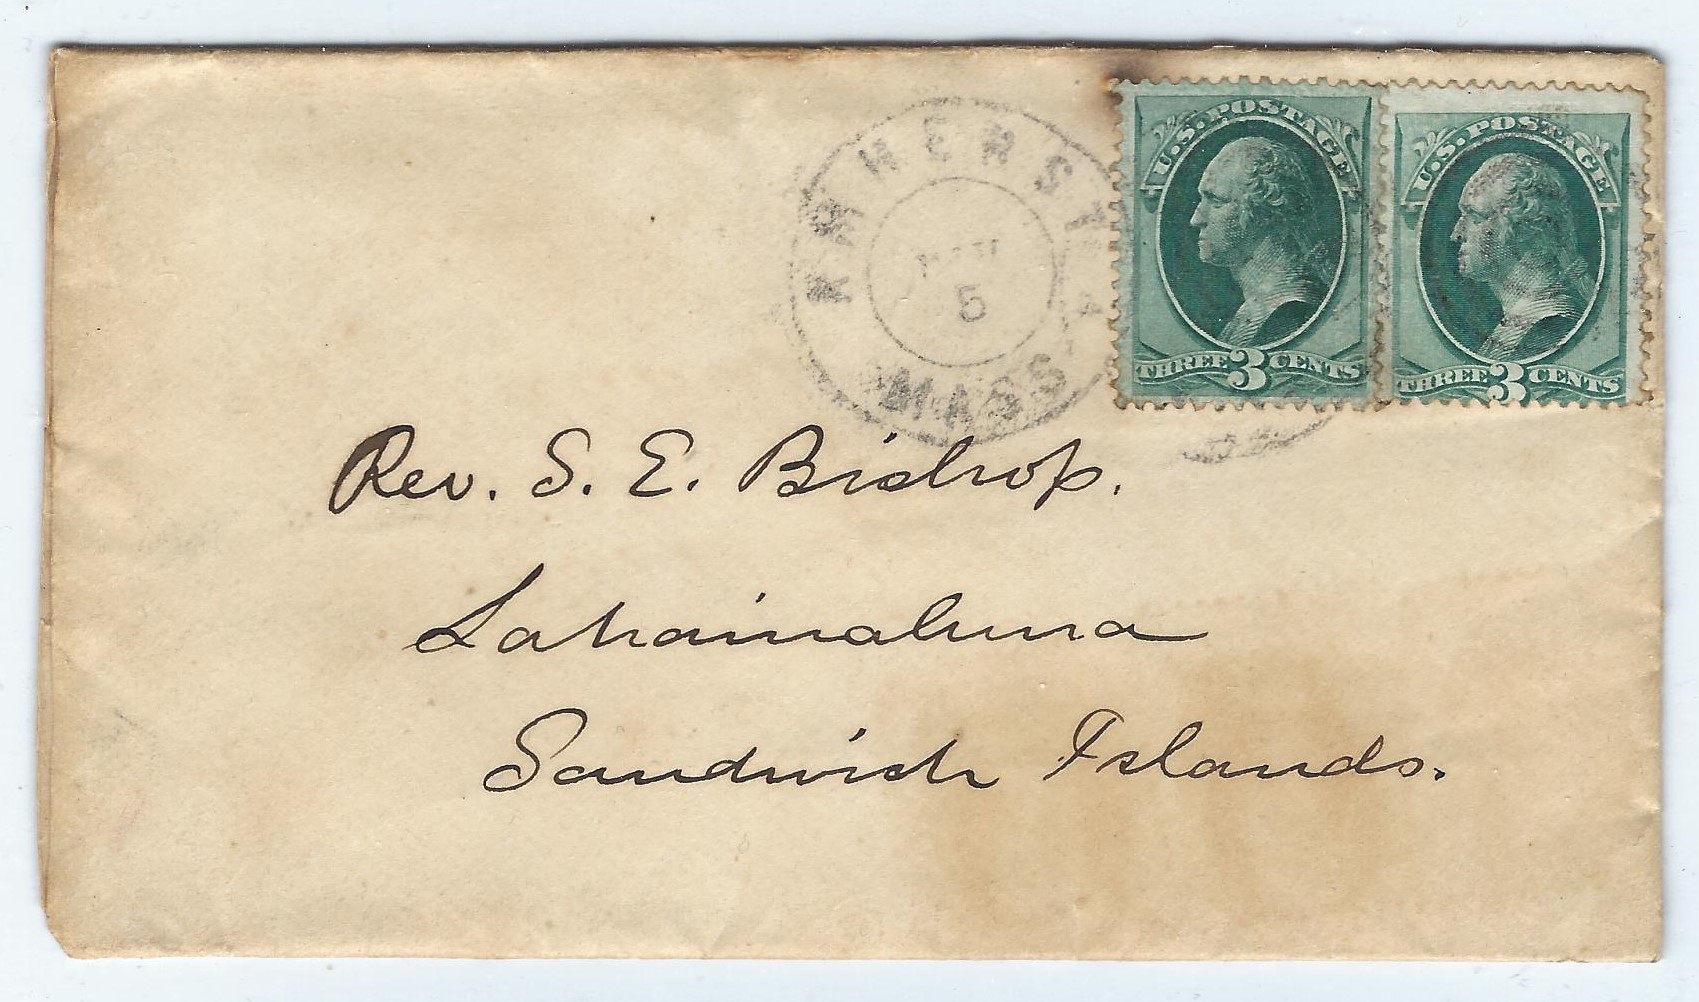 AMHERST
5
MASS
U.S. POSTAGE
THREE 3 CENTS
U.S. POSTAGE
THREE 3 CENTS
Rev. S. E. Bishop.
Lahainaluna
Sandwich Islands.